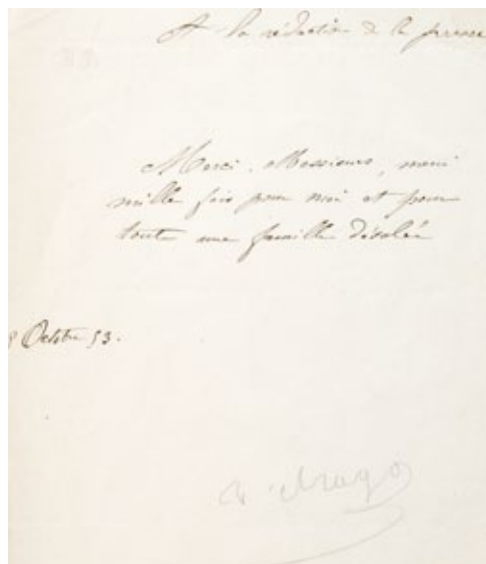 A la rédaction de la presse
Merci, Messieurs, merci
mille fois pour moi et pour
toute une famille désolée
8 Octobre 53.
Arago